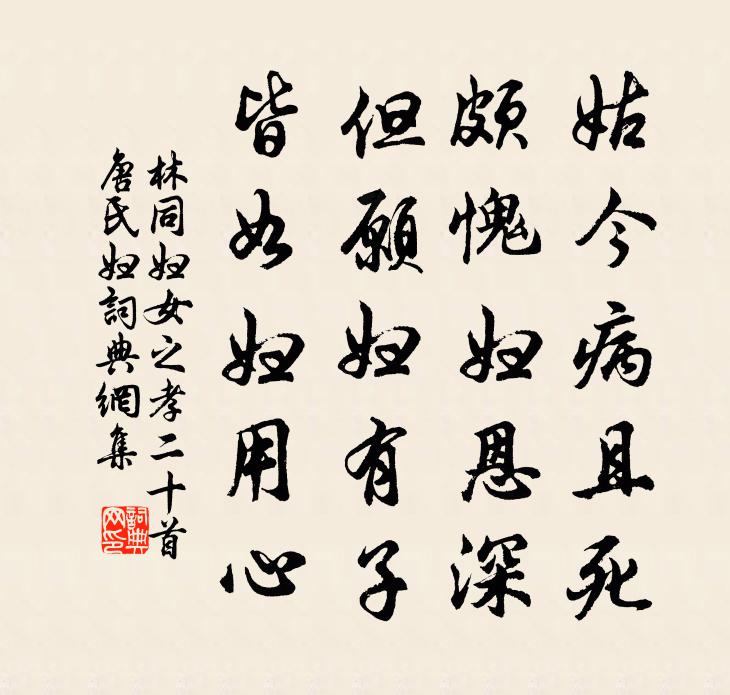 姑今病且死
頗愧婦恩深
但願婦有子
皆如婦用心
林同婦女之孝二十首
唐氏婦詞典網集
詞典網印